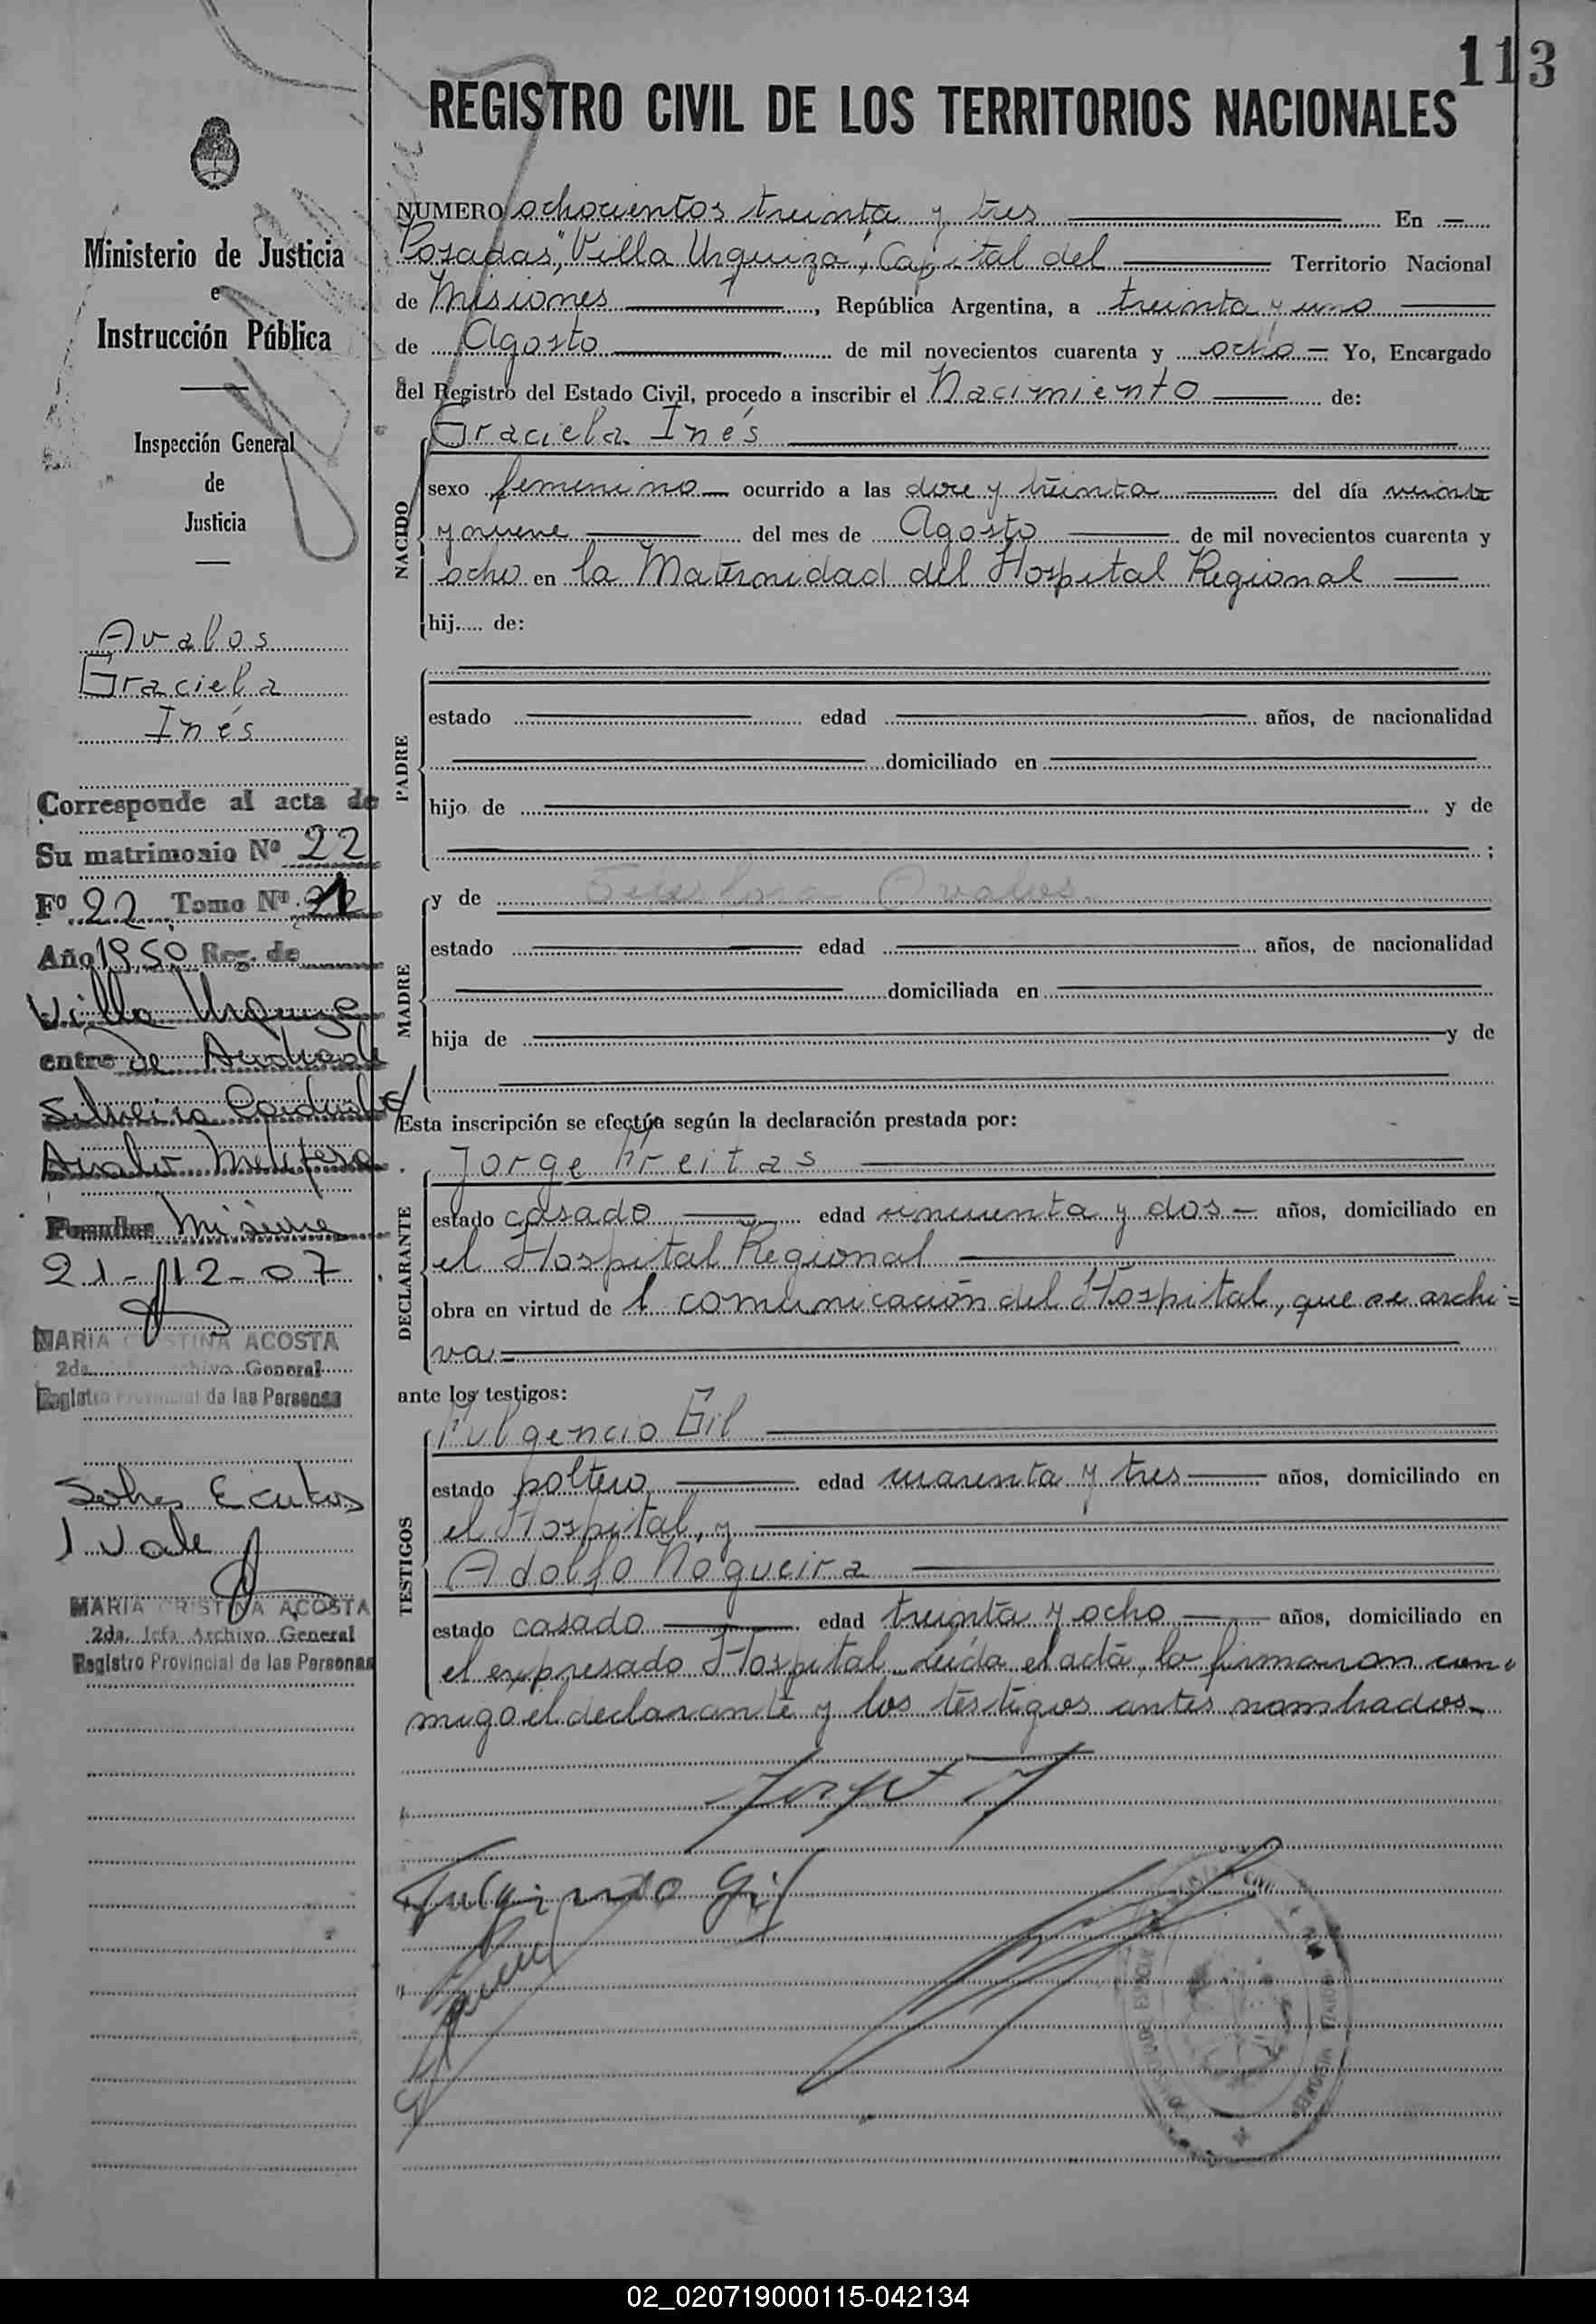 113
REGISTRO CIVIL DE LOS TERRITORIOS NACIONALES
Ministerio de Justicia
e
Instrucción Pública
Inspección General
de
Justicia
Avalos
Graciela
Inés
Corresponde al acta de
Su matrimonio Nº 22
Fº 22 Tomo Nº 1
Año 1950 Reg. de
Villa Urquiza
entre de Andrade
Silveira
Avalos
Posadas Misiones
21-12-07
MARIA CRISTINA ACOSTA
2da. Jefa Archivo General
Registro Provincial de las Personas
Sobre
1 Vale
MARIA CRISTINA ACOSTA
2da. Jefa Archivo General
Registro Provincial de las Personas
NUMERO ochocientos treinta y tres En
Posadas, "Villa Urquiza", Capital del Territorio Nacional
de Misiones, República Argentina, a treinta y uno
de Agosto de mil novecientos cuarenta y ocho Yo, Encargado
del Registro del Estado Civil, procedo a inscribir el Nacimiento de:
Graciela Inés
NACIDO
sexo femenino ocurrido a las doce y treinta del día veinte
y nueve del mes de Agosto de mil novecientos cuarenta y
ocho en la Maternidad del Hospital Regional
hij..... de:
PADRE
estado edad años, de nacionalidad
domiciliado en
hijo de y de
;
MADRE
y de Avalos
estado edad años, de nacionalidad
domiciliada en
hija de y de
Esta inscripción se efectúa según la declaración prestada por:
DECLARANTE
Jorge Freitas
estado casado edad cincuenta y dos años, domiciliado en
el Hospital Regional
obra en virtud de l comunicación del Hospital, que se archi=
va.
ante los testigos:
TESTIGOS
Fulgencio Gil
estado soltero edad cuarenta y tres años, domiciliado en
el Hospital, y
Adolfo Nogueira
estado casado edad treinta y ocho años, domiciliado en
el expresado Hospital. Leída el acta, la firmaron con=
migo el declarante y los testigos antes nombrados.
Jorge F
Fulgencio Gil
02_020719000115-042134